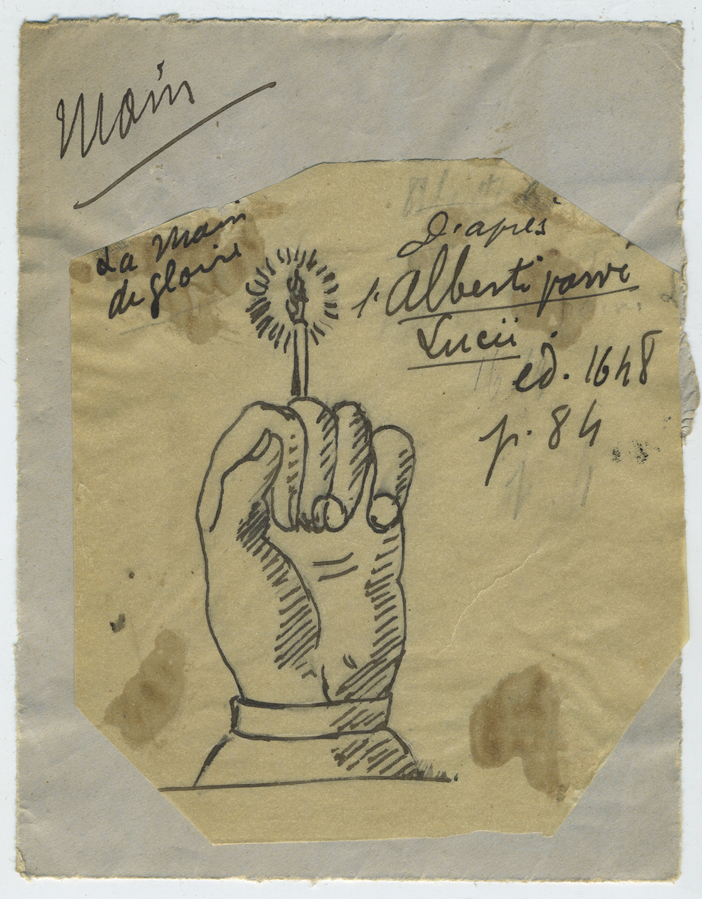 Main
La Main
de gloire
D'après
l'Alberti parvi
Lucii.
ed. 1648
p. 84